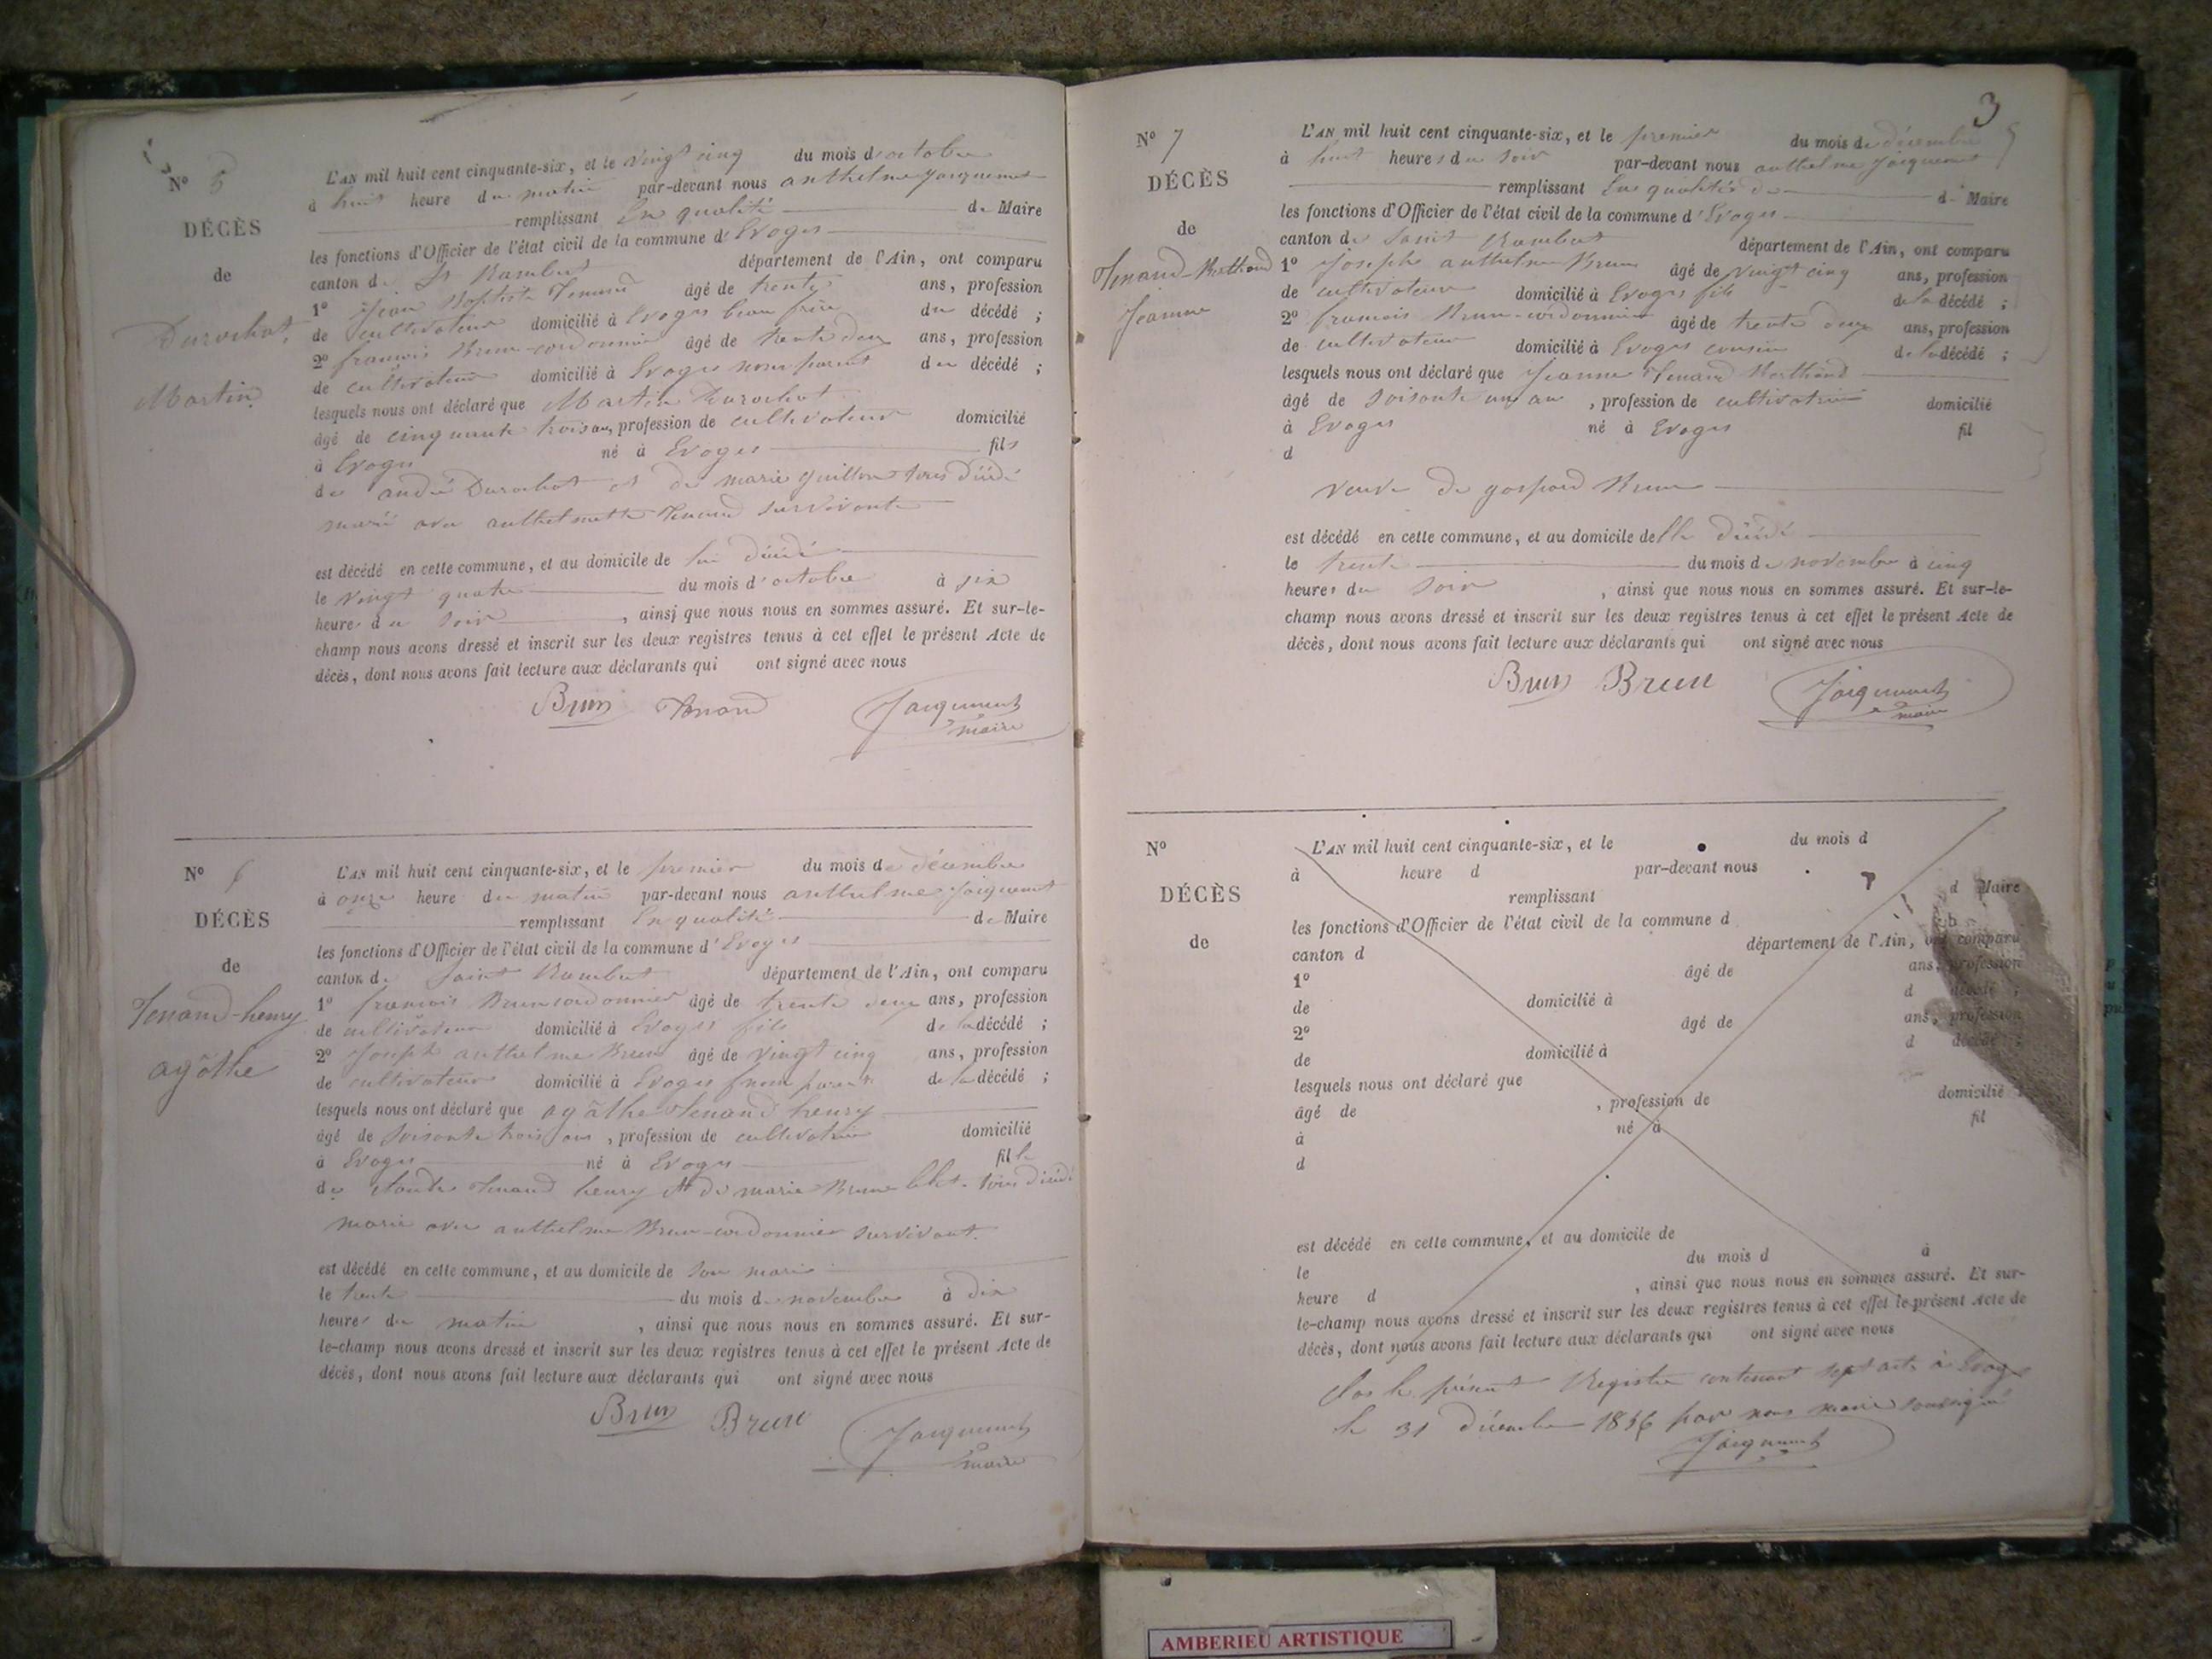 N° 5
DÉCÈS
de
Durochat,
Martin
L'AN mil huit cent cinquante-six, et le vingt cinq du mois d'octobre
à huit heure du matin par-devant nous anthelme Jacquemet
remplissant En qualité de Maire
les fonctions d'Officier de l'état civil de la commune d'Evoges
canton de St Rambert département de l'Ain, ont comparu
1° Jean Baptiste Tenand âgé de trente ans, profession
de cultivateur domicilié à Evoges beau frère du décédé ;
2° francois Brun-cordonnier âgé de trente deux ans, profession
de cultivateur domicilié à Evoges non parent du décédé ;
lesquels nous ont déclaré que Martin Durochat
âgé de cinquante trois ans, profession de cultivateur domicilié
à Evoges né à Evoges fils
de andré Durochat et de marie Guillon tous
marié avec anthelmette Tenand survivante
est décédé en cette commune, et au domicile de lui
le vingt quatre du mois d'octobre à six
heures du soir , ainsi que nous nous en sommes assuré. Et sur-le-
champ nous avons dressé et inscrit sur les deux registres tenus à cet effet le présent Acte de
décès, dont nous avons fait lecture aux déclarants qui ont signé avec nous
Brun Tenand Jacquemet
maire
N° 6
DÉCÈS
de
Tenand-henry
agathe
L'AN mil huit cent cinquante-six, et le premier du mois de décembre
à onze heure du matin par-devant nous anthelme Jacquemet
remplissant En qualité de Maire
les fonctions d'Officier de l'état civil de la commune d'Evoges
canton de Saint Rambert département de l'Ain, ont comparu
1° francois Brun cordonnier âgé de trente deux ans, profession
de cultivateur domicilié à Evoges fils de la décédé ;
2° Joseph anthelme Brun âgé de vingt cinq ans, profession
de cultivateur domicilié à Evoges non parent de la décédé ;
lesquels nous ont déclaré que agathe Tenand henry
âgé de soisante trois ans , profession de cultivatrice domicilié
à Evoges né à Evoges fille
de Claude Tenand henry et de marie Brun tous
marié avec anthelme Brun-cordonnier survivant.
est décédé en cette commune, et au domicile de son mari
le trente du mois de novembre à dix
heures du matin , ainsi que nous nous en sommes assuré. Et sur-
le-champ nous avons dressé et inscrit sur les deux registres tenus à cet effet le présent Acte de
décès, dont nous avons fait lecture aux déclarants qui ont signé avec nous
Brun Brun Jacquemet
maire
3
N° 7
DÉCÈS
de
Tenand-Berthand
Jeanne
L'AN mil huit cent cinquante-six, et le premier du mois de décembre
à huit heures du soir par-devant nous anthelme Jacquemet
remplissant Les qualités de d Maire
les fonctions d'Officier de l'état civil de la commune d'Evoges
canton de Saint Rambert département de l'Ain, ont comparu
1° Joseph anthelme Brun âgé de vingt cinq ans, profession
de cultivateur domicilié à Evoges fils de la décédé ;
2° francois Brun-cordonnier âgé de trente deux ans, profession
de cultivateur domicilié à Evoges cousin de la décédé ;
lesquels nous ont déclaré que Jeanne Tenand Berthand
âgé de soisante un an , profession de cultivatrice domicilié
à Evoges né à Evoges fil
d
veuve de gaspard Brun
est décédé en cette commune, et au domicile de elle
le trente du mois de novembre à cinq
heures du soir , ainsi que nous nous en sommes assuré. Et sur-le-
champ nous avons dressé et inscrit sur les deux registres tenus à cet effet le présent Acte de
décès, dont nous avons fait lecture aux déclarants qui ont signé avec nous
Brun Brun Jacquemet
maire
N°
DÉCÈS
de
L'AN mil huit cent cinquante-six, et le du mois d
à heure d par-devant nous
remplissant d Maire
les fonctions d'Officier de l'état civil de la commune d
canton d département de l'Ain, ont comparu
1° âgé de ans, profession
de domicilié à d décédé ;
2° âgé de ans, profession
de domicilié à d décédé ;
lesquels nous ont déclaré que
âgé de , profession de domicilié
à né à fil
d
est décédé en cette commune, et au domicile de
le du mois d à
heure d , ainsi que nous nous en sommes assuré. Et sur-
le-champ nous avons dressé et inscrit sur les deux registres tenus à cet effet le présent Acte de
décès, dont nous avons fait lecture aux déclarants qui ont signé avec nous
Clos le présent Registre contenant sept acte à Evoges
le 31 décembre 1856 par nous maire soussigné
Jacquemet
AMBERIEU ARTISTIQUE